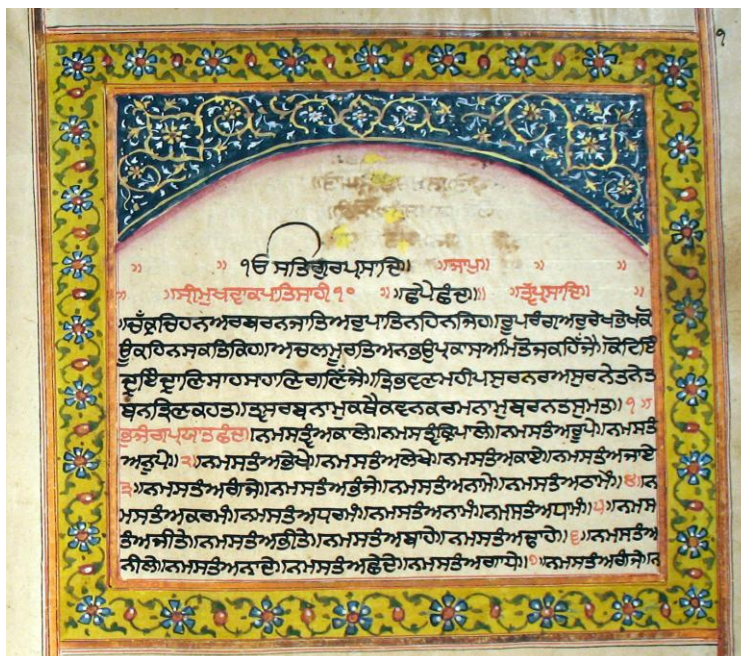 ੧
ੴ ਸਤਿਗੁਰਪ੍ਰਸਾਦਿ॥ ॥ਜਾਪੁ॥
॥ਸ੍ਰੀਮੁਖਵਾਕਪਾਤਿਸਾਹੀ੧੦ ॥ਛਪੈਛੰਦ॥ ਤ੍ਵਪ੍ਰਸਾਦਿ॥
॥ਚੱਕ੍ਰਚਿਹਨਅਰਬਰਨਜਾਤਿਅਰੁਪਾਤਿਨਹਿਨਜਿਹ॥ਰੂਪਰੰਗਅਰੁਰੇਖਭੇਖਕੋ
ਊਕਹਿਨਸਕਤਿਕਿਹ॥ਅਚਲਮੂਰਤਿਅਨਭਉਪ੍ਰਕਾਸਅਮਿਤੋਜਕਹਿੱਜੈ॥ਕੋਟਿਇੰ
ਦ੍ਰਇੰਦ੍ਰਾਣਿਸਾਹਸਾਹਾਣਿਗਣਿੱਜੈ॥ਤ੍ਰਿਭਵਣਮਹੀਪਸੁਰਨਰਅਸੁਰਨੇਤਨੇਤ
ਬਨਤ੍ਰਿਣਕਹਤ॥ਤ੍ਵਸਰਬਨਾਮੁਕਥੈਕਵਨਕਰਮਨਾਮੁਬਰਨਤਸੁਮਤ॥੧॥
ਭੁਜੰਗਪ੍ਰਯਾਤਛੰਦ॥ਨਮਸਤ੍ਵੰਅਕਾਲੇ॥ਨਮਸਤ੍ਵੰਕ੍ਰਿਪਾਲੇ॥ਨਮਸਤੰਅਰੂਪੇ॥ਨਮਸਤੰ
ਅਨੂਪੇ॥੨॥ਨਮਸਤੰਅਭੇਖੇ॥ਨਮਸਤੰਅਲੇਖੇ॥ਨਮਸਤੰਅਕਾਏ॥ਨਮਸਤੰਅਜਾਏ
੩॥ਨਮਸਤੰਅਗੰਜੇ॥ਨਮਸਤੰਅਭੰਜੇ॥ਨਮਸਤੰਅਨਾਮੇ॥ਨਮਸਤੰਅਠਾਮੇ॥੪॥ਨ
ਮਸਤੰਅਕਰਮੰ॥ਨਮਸਤੰਅਧਰਮੰ॥ਨਮਸਤੰਅਨਾਮੰ॥ਨਮਸਤੰਅਧਾਮੰ॥੫॥ਨਮਸ
ਤੰਅਜੀਤੇ॥ਨਮਸਤੰਅਭੀਤੇ॥ਨਮਸਤੰਅਬਾਹੇ॥ਨਮਸਤੰਅਢਾਹੇ॥੬॥ਨਮਸਤੰਅ
ਨੀਲੇ॥ਨਮਸਤੰਅਨਾਦੇ॥ਨਮਸਤੰਅਛੇਦੇ॥ਨਮਸਤੰਅਗਾਧੇ॥੭॥ਨਮਸਤੰਅਗੰਜੇ॥ਨ